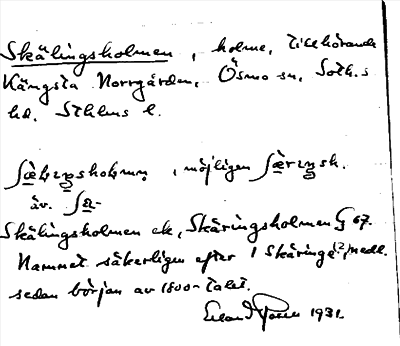 Skälingsholmen, holme, tillhörande
Kängsta Norrgården, Ösmo sn, Soth.s
hd. Sthlms l.
möjligen
äv.
Skälingsholmen ek, Skäringsholmen G 67.
Namnet säkerligen efter 1 Skäringe (?), medl.
sedan början av 1800-talet.
1931.